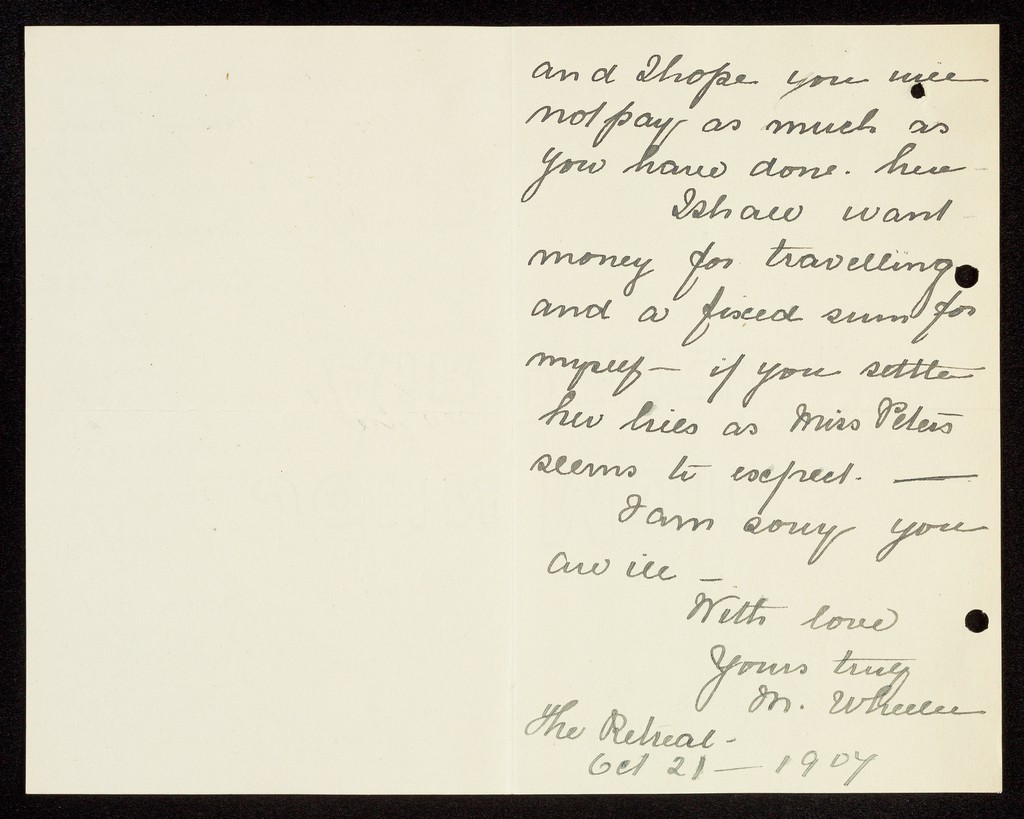 and I hope you will
not pay as much as
you have done. here
I shall want
money for travelling
and a fixed sum for
myself — if you settle
her bills as Miss Peters
seems to expect. —
I am sorry you
are ill —
With love
Yours truly
M. Wheeler
The Retreat -
Oct 21 — 1907